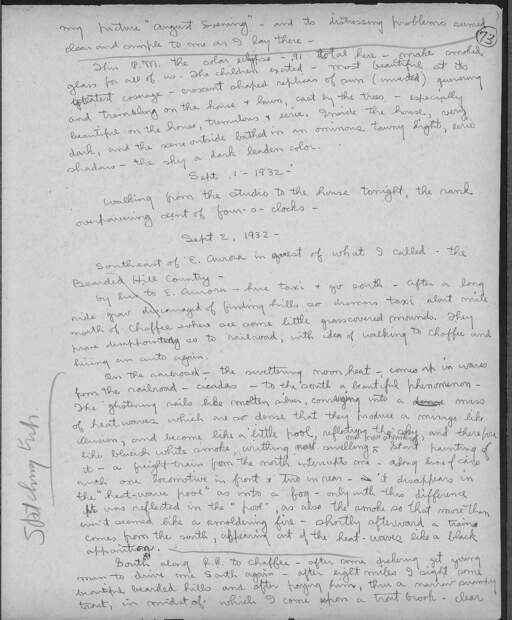 my picture "August Evening" - and to distressing problems seemed
clear and simple to me as I lay there -
73
This P.M. the solar eclipse - .91 total here - make smoked
glass for all of us. The children excited - most beautiful at its
greatest coverage - crescent shaped replicas of sun (inverted) quivering
and trembling on the house & lawn, cast by the trees - especially
beautiful on the house, tremulous & eerie. Inside the house, very
dark, and the scene outside bathed in an ominous tawny light, eerie
shadows - the sky a dark leaden color.
Sept. 1 - 1932 -
Walking from the studio to the house tonight, the rank
overpowering scent of four-o-clocks -
Sept 2, 1932 -
Southeast of E. Aurora in quest of what I called - the
Bearded Hill Country -
by bus to E. Aurora - hire taxi & go south - After a long
ride grow discouraged of finding hills so dismiss taxi about mile
north of Chaffee where are some little grasscovered mounds. They
prove disappointing so to railroad, with idea of walking to Chaffee and
hiring an auto again.
On the railroad - the sweltering noon heat - comes up in waves
from the railroad - cicadas - to the south a beautiful phenomenon -
The glistening rails like molten silver, converging into a dense mass
of heat waves which are so dense that they produce a mirage like
illusion, and become like a little pool, reflecting the sky, and therefore
like blueish white smoke, writhing and swelling. Start painting of
it - a freight train from the north interrupts me - along line of cars
with one locomotive in front & two in rear - it disappears in
the "heat-wave pool" as into a fog - only with this difference
it was reflected in the "pool", as also the smoke so that more than
ever it seemed like a smoldering fire - shortly afterward a train
comes from the south, appearing out of the heat-waves like a black
apparition.
South along R.R. to Chaffee - after some dickering get young
man to drive me south again - after eight miles I sight some
beautiful bearded hills and after paying him, thru a narrow country
road, in midst of which I come upon a trout brook - clear
Sketching Trip